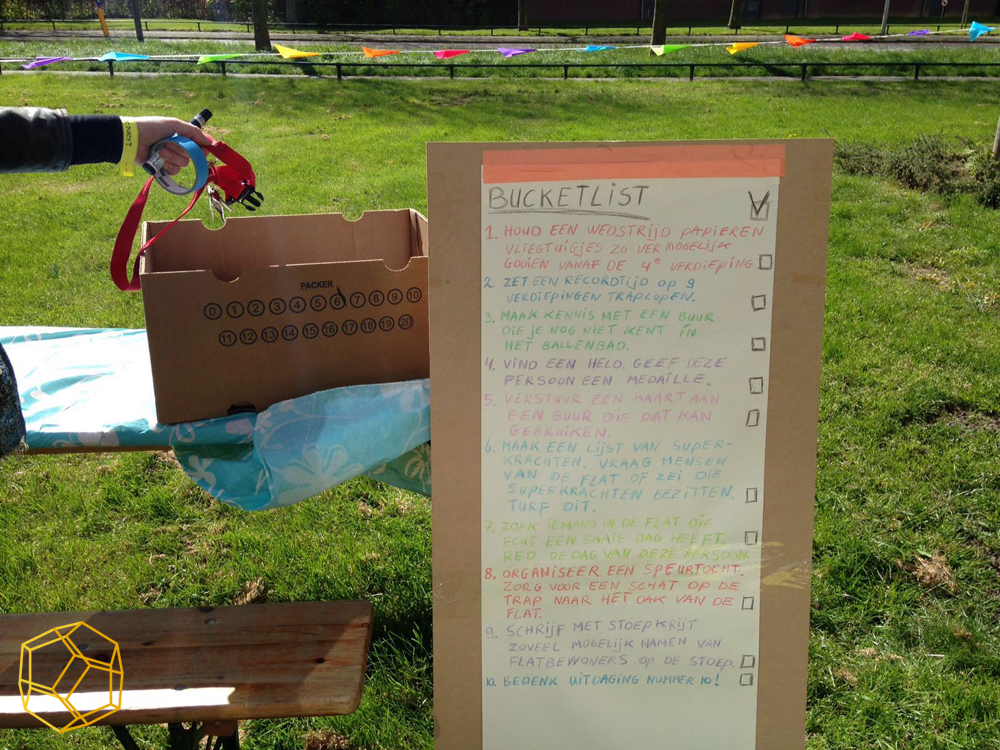 PACKER
0 1 2 3 4 5 6 7 8 9 10
11 12 13 14 15 16 17 18 19 20
BUCKETLIST
1. HOUD EEN WEDSTRIJD PAPIEREN
VLIEGTUIGJES ZO VER MOGELIJK
GOOIEN VANAF DE 4e VERDIEPING
2. ZET EEN RECORDTIJD OP 9
VERDIEPINGEN TRAPLOPEN.
3. MAAK KENNIS MET EEN BUUR
DIE JE NOG NIET KENT IN
HET BALLENBAD.
4. VIND EEN HELD. GEEF DEZE
PERSOON EEN MEDAILLE.
5. VERSTUUR EEN KAART AAN
EEN BUUR DIE DAT KAN
GEBRUIKEN.
6. MAAK EEN LIJST VAN SUPER-
KRACHTEN. VRAAG MENSEN
VAN DE FLAT OF ZEI DIE
SUPERKRACHTEN BEZITTEN.
TURF DIT.
7. ZOEK IEMAND IN DE FLAT DIE
ECHT EEN SAAIE DAG HEEFT.
RED DE DAG VAN DEZE PERSOON.
8. ORGANISEER EEN SPEURTOCHT.
ZORG VOOR EEN SCHAT OP DE
TRAP NAAR HET DAK VAN DE
FLAT.
9. SCHRIJF MET STOEPKRIJT
ZOVEEL MOGELIJK NAMEN VAN
FLATBEWONERS OP DE STOEP.
10. BEDENK UITDAGING NUMMER 10!